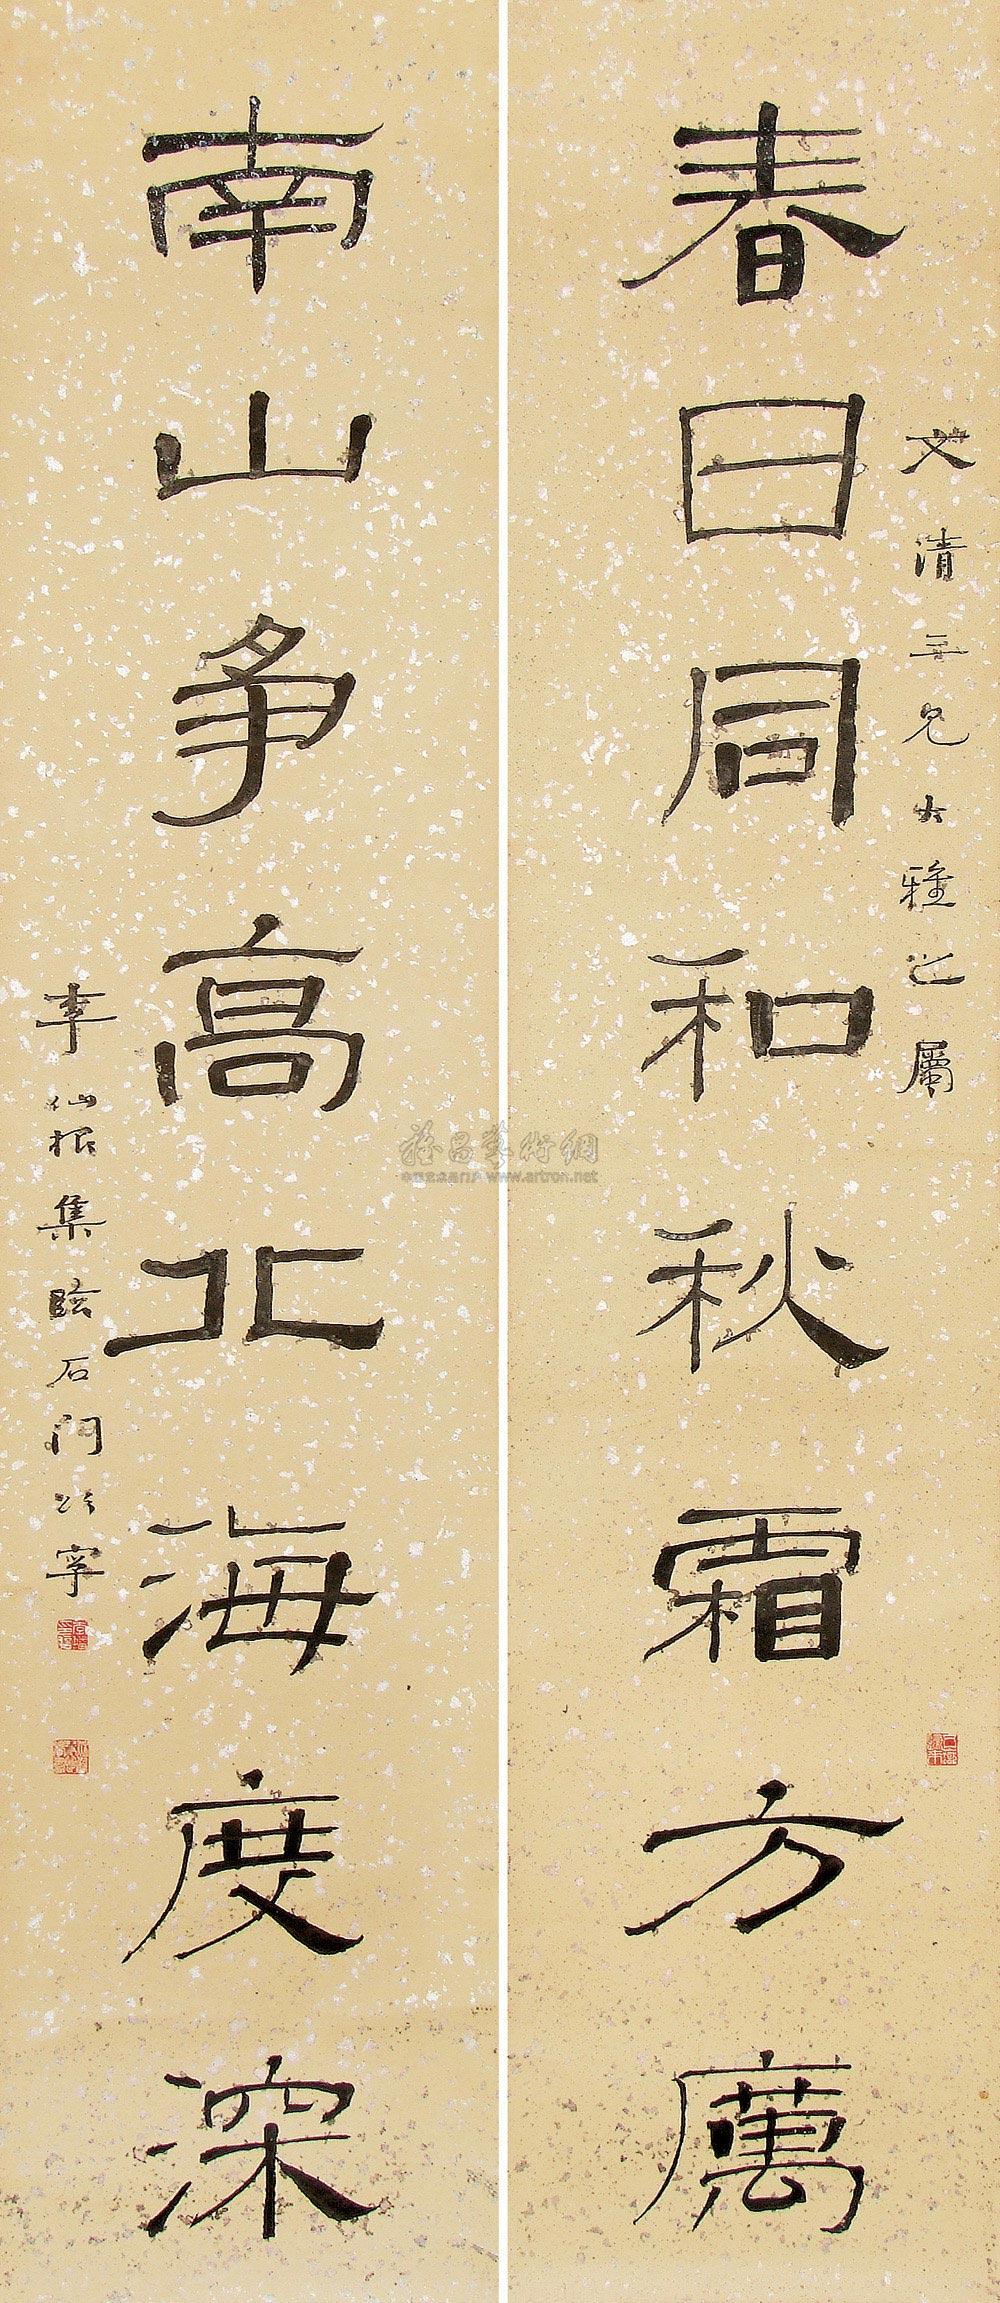 文清三兄大雅之屬
春日同和秋霜方厲
南山争高北海度深
李仙根集臨石門頌字
雅昌藝術網
www.artron.net